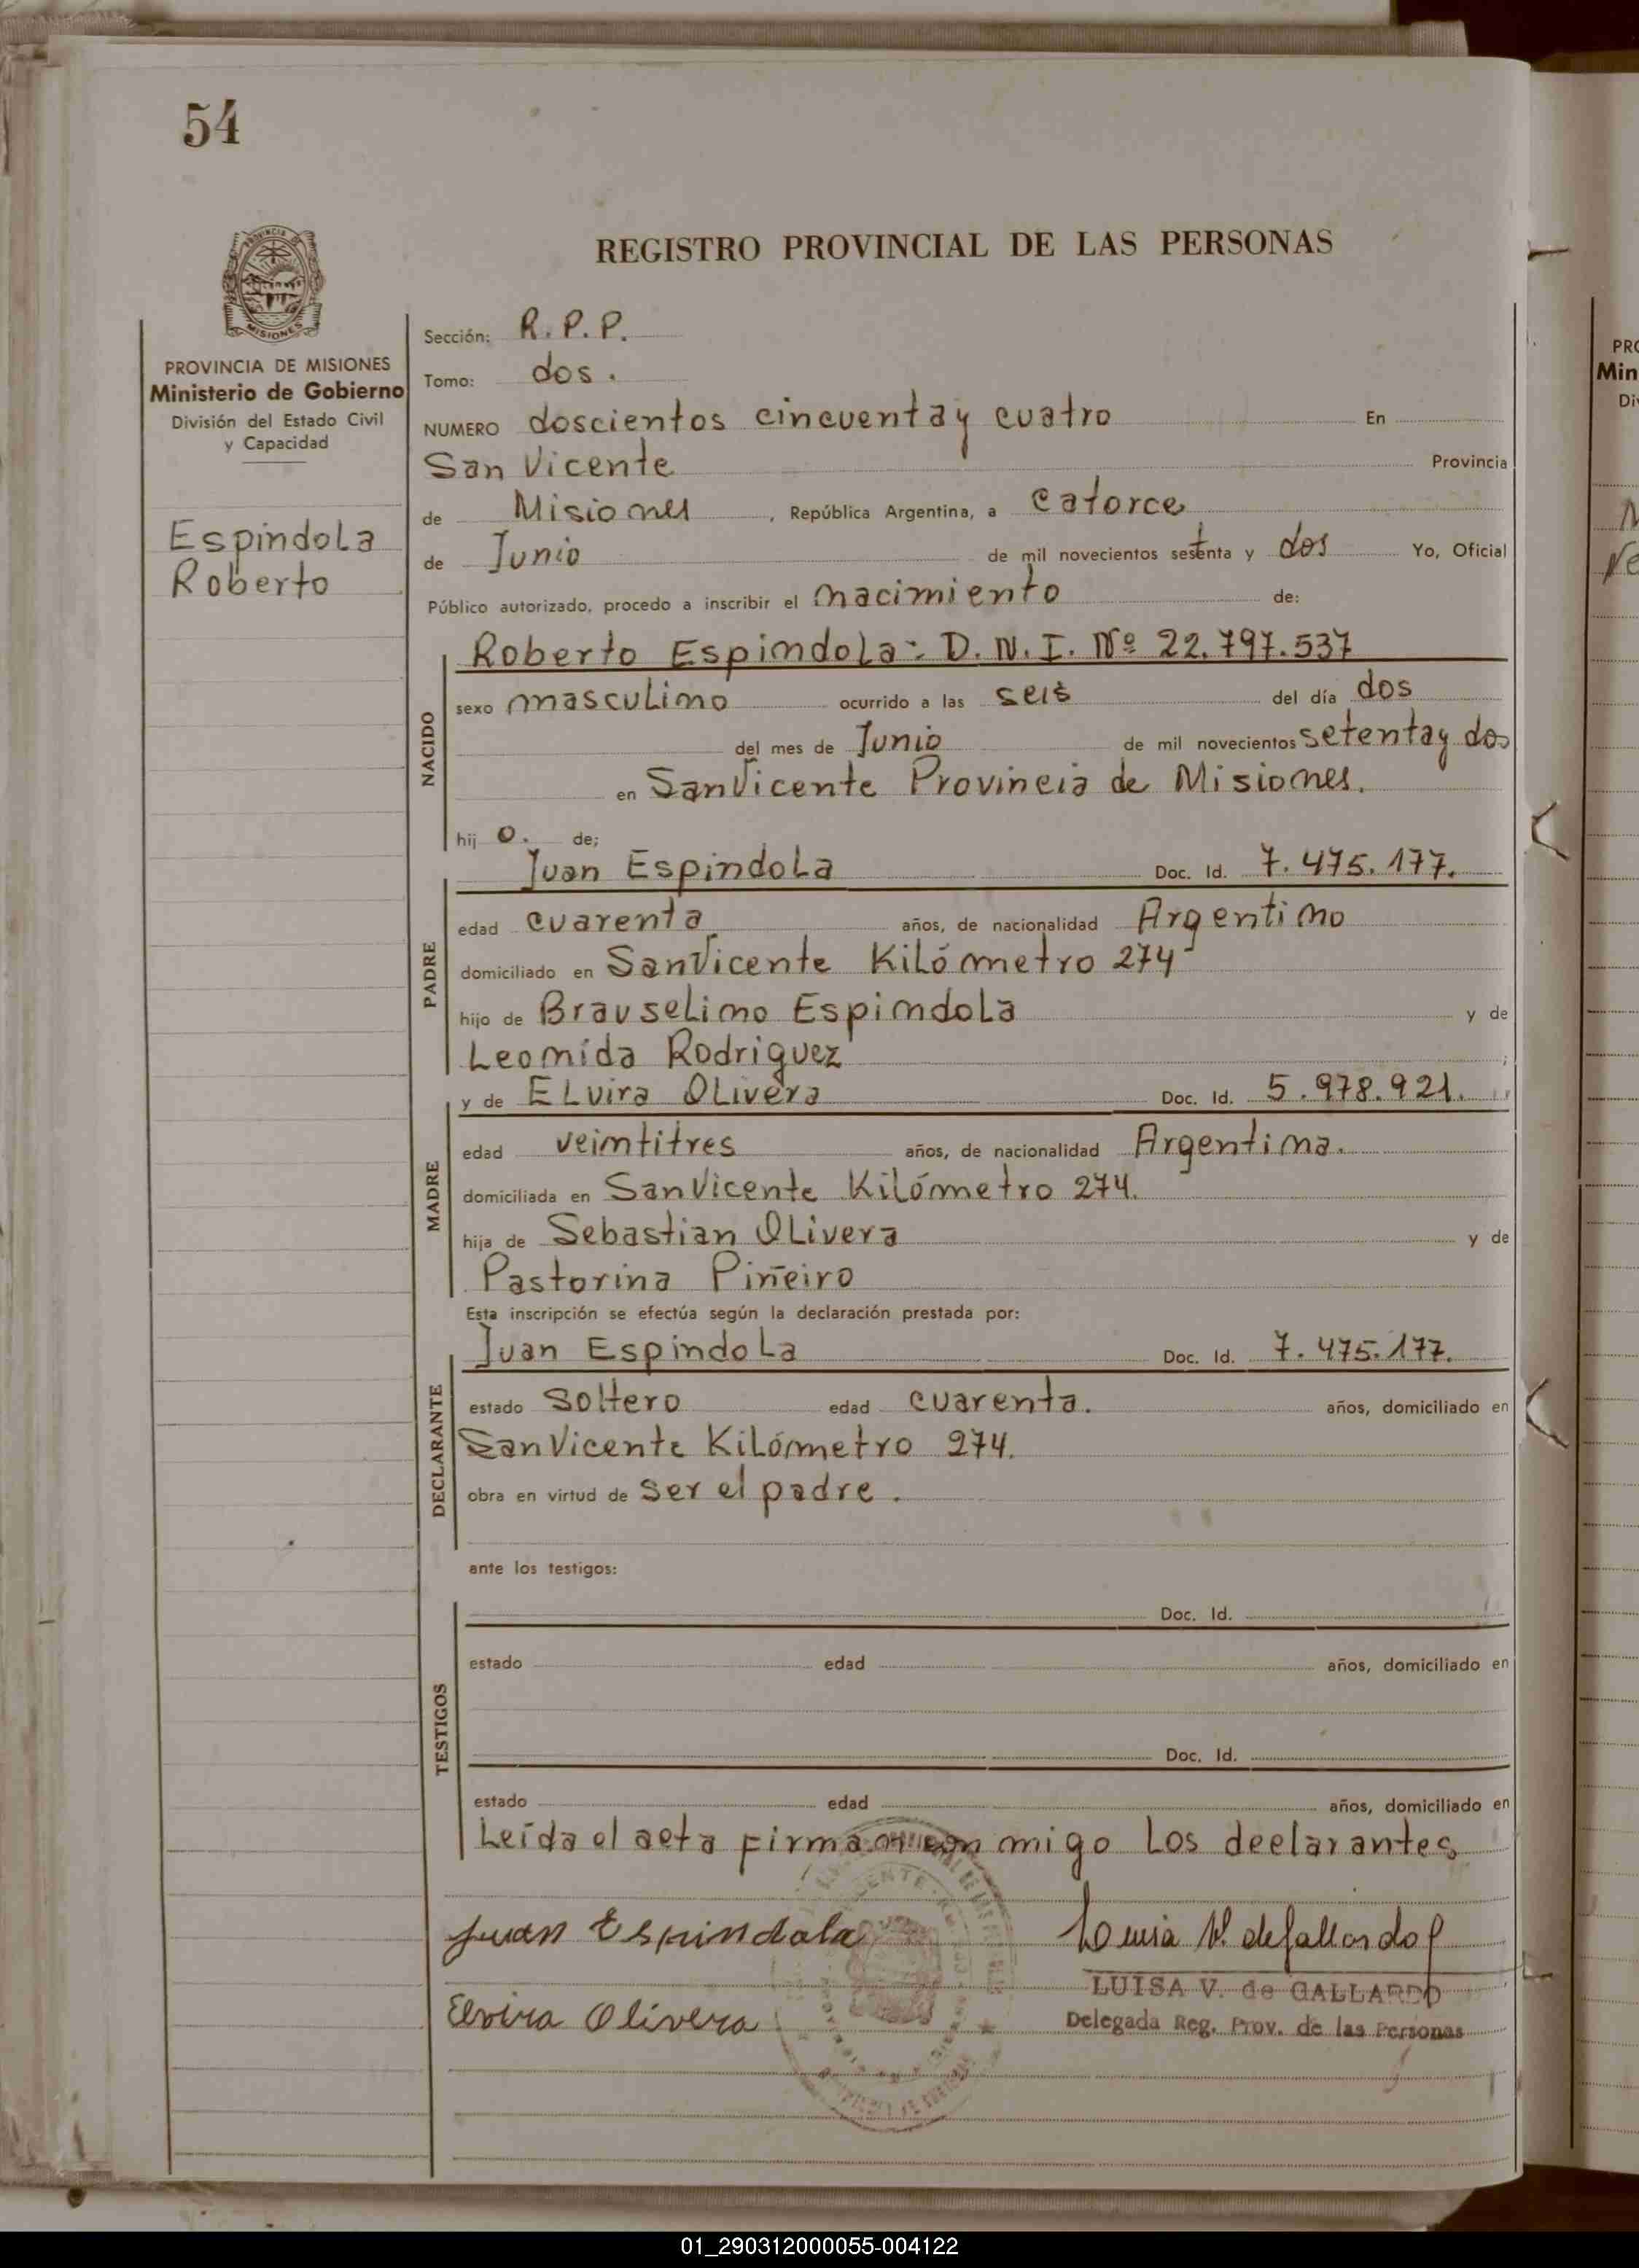 54
REGISTRO PROVINCIAL DE LAS PERSONAS
PROVINCIA DE MISIONES
Ministerio de Gobierno
División del Estado Civil
y Capacidad
Espíndola
Roberto
Sección: R. P. P.
Tomo: dos.
NUMERO doscientos cincuenta y cuatro En
San Vicente Provincia
de Misiones, República Argentina, a catorce
de Junio de mil novecientos setenta y dos Yo, Oficial
Público autorizado, procedo a inscribir el nacimiento de:
NACIDO
Roberto Espíndola: D. N. I. Nº 22.797.537
sexo masculino ocurrido a las seis del día dos
del mes de Junio de mil novecientos setenta y dos
en San Vicente Provincia de Misiones.
hij o. de;
PADRE
Juan Espíndola Doc. Id. 7.475.177.
edad cuarenta años, de nacionalidad Argentino
domiciliado en San Vicente Kilómetro 274
hijo de Brauselino Espíndola y de
Leonída Rodriguez ;
MADRE
y de Elvira Olivera Doc. Id. 5.978.921.
edad veintitres años, de nacionalidad Argentina.
domiciliada en San Vicente Kilómetro 274.
hija de Sebastian Olivera y de
Pastorina Piñeiro
Esta inscripción se efectúa según la declaración prestada por:
DECLARANTE
Juan Espíndola Doc. Id. 7.475.177.
estado soltero edad cuarenta. años, domiciliado en
San Vicente Kilómetro 274.
obra en virtud de ser el padre.
ante los testigos:
TESTIGOS
Doc. Id.
estado edad años, domiciliado en
Doc. Id.
estado edad años, domiciliado en
Leída el acta firman con migo los declarantes
Juan Espindola
Luisa V. de Gallardo
LUISA V. de GALLARDO
Elvira Olivera
Delegada Reg. Prov. de las Personas
01_290312000055-004122